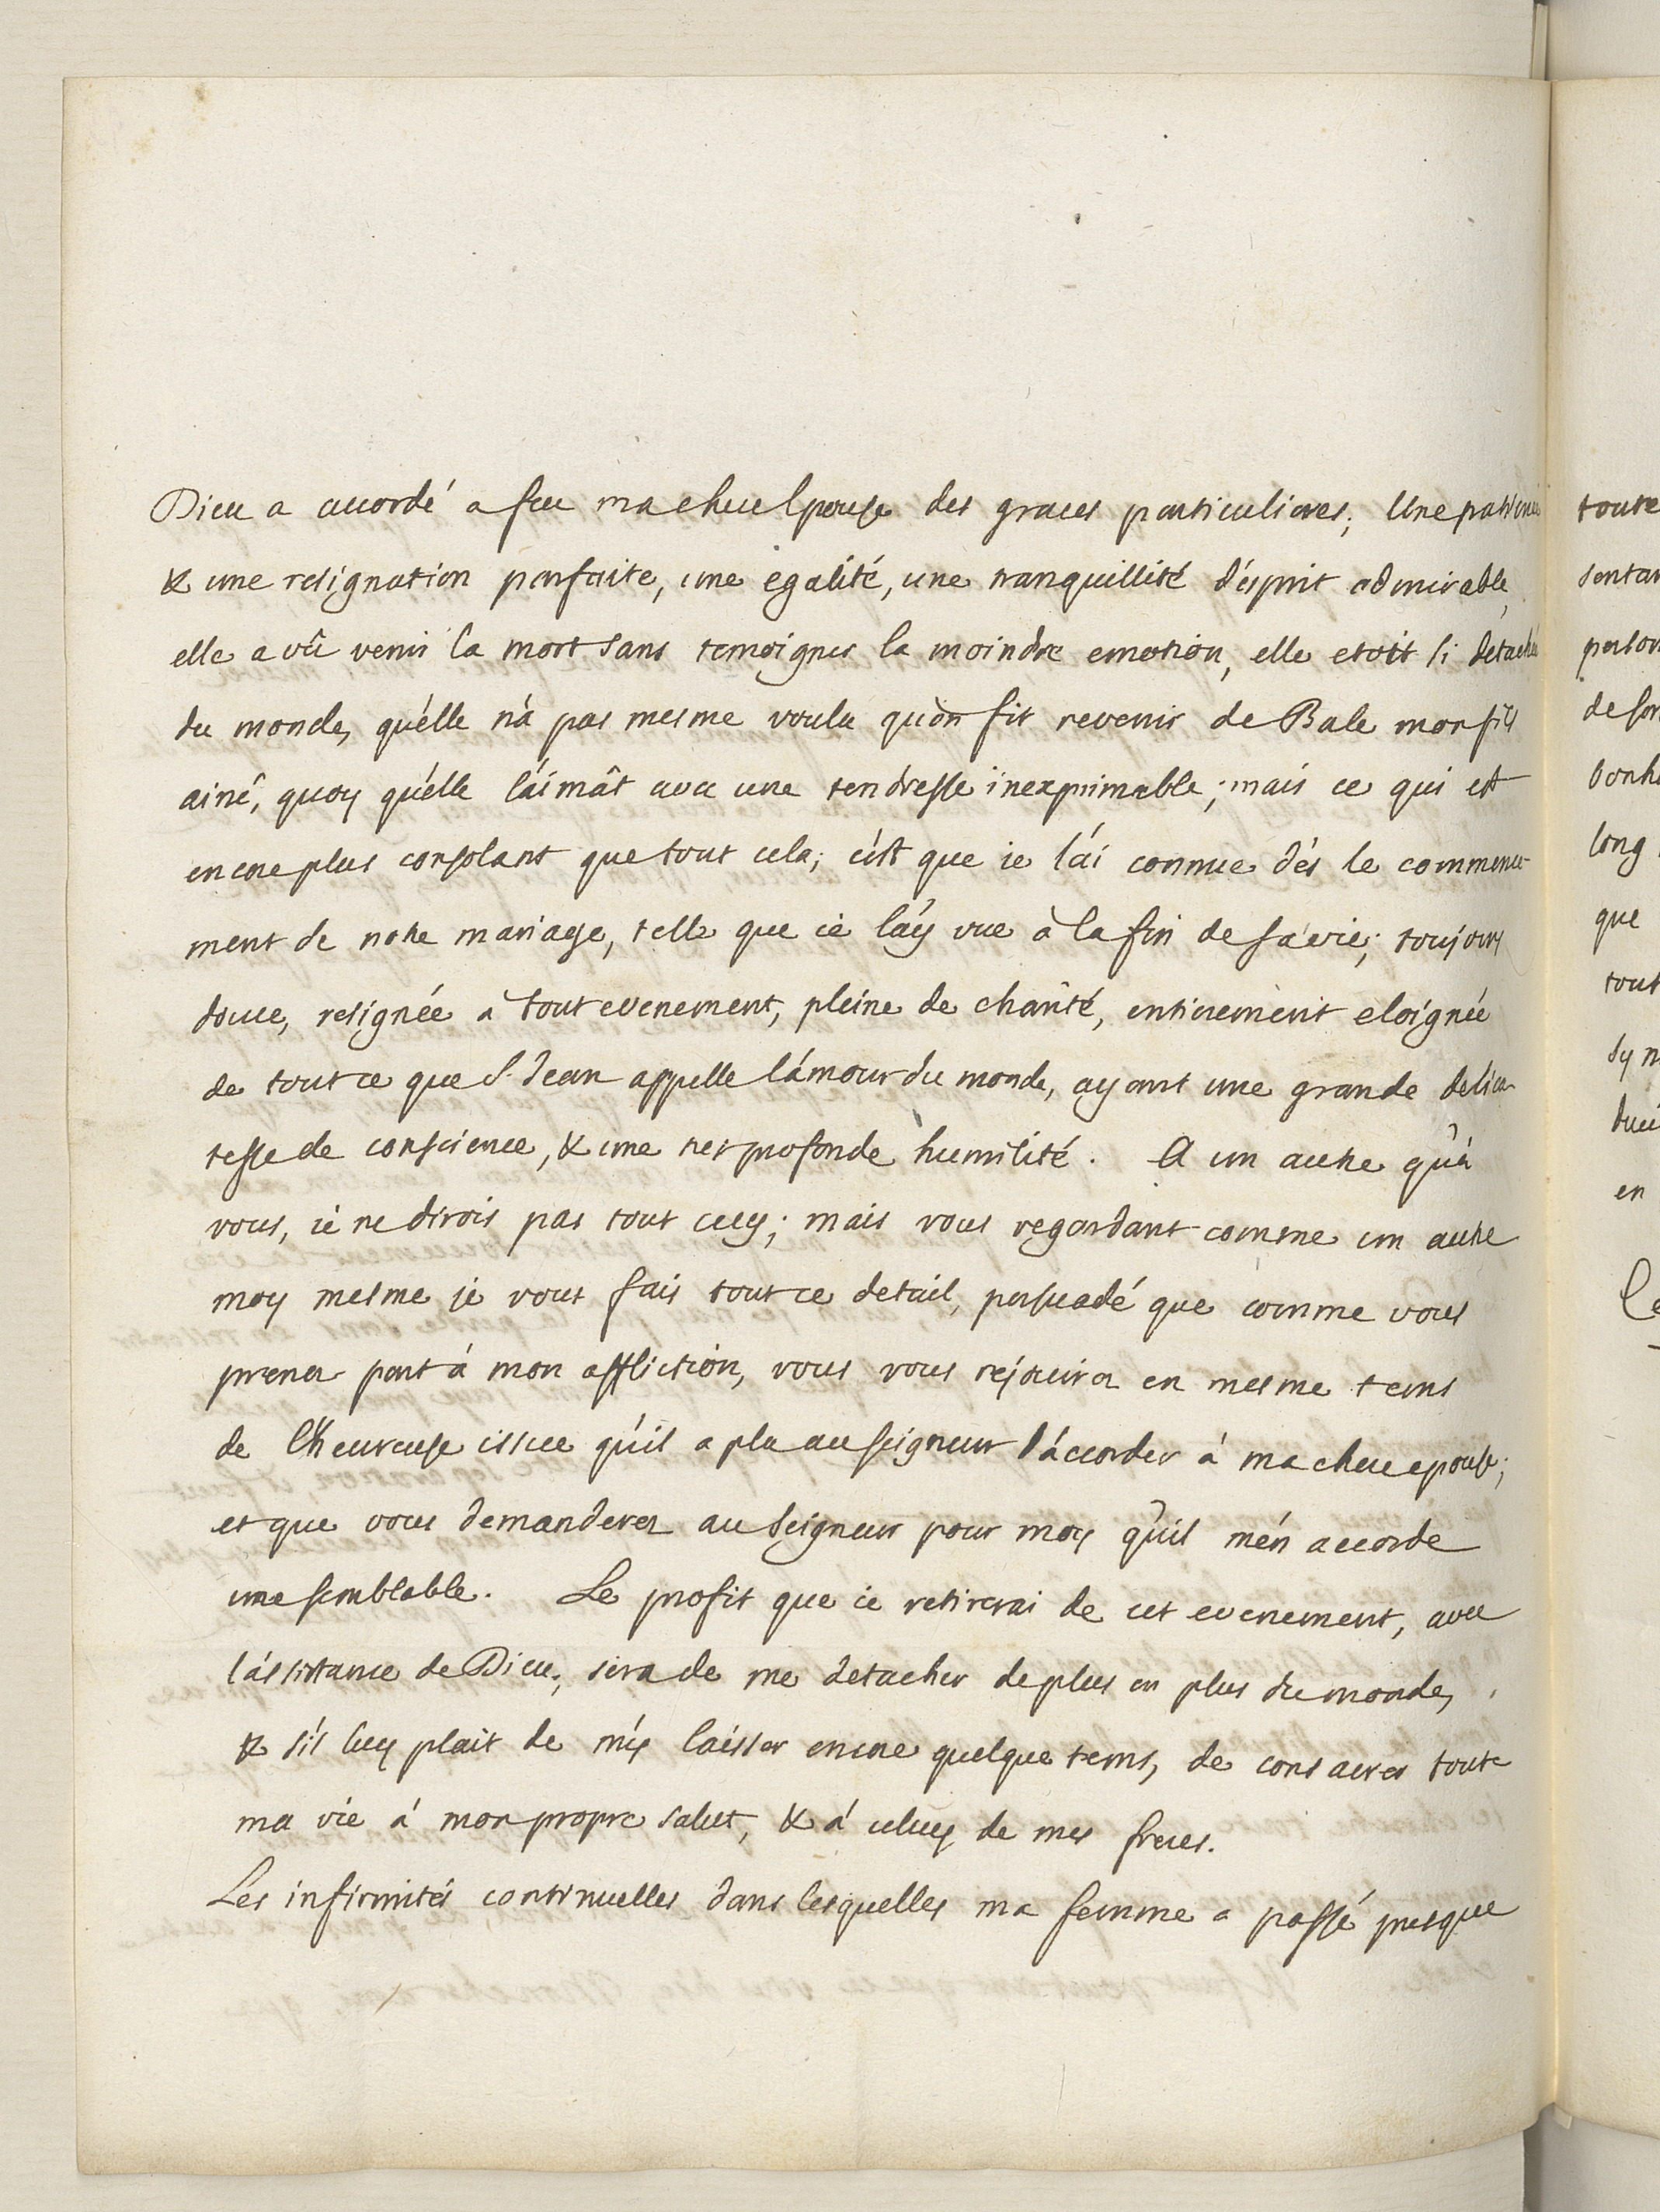 Dieu a accordé a feu ma chere Epouse des graces particulieres; Une patience
& une resignation parfaite, une egalité, une tranquillité d'ésprit admirable,
elle a vû venir la mort sans temoigner la moindre emotion, elle etoit si détachée
du monde, qu'élle n'á pas mesme voulu qu'on fit revenir de Bale mon fils
ainé, quoy qu'élle l'áimât avec une tendresse inexprimable; mais ce qui est
encore plus consolant que tout cela; c'ést que ie l'ái connue dés le commence-
ment de notre mariage, telle que ie l'áy vue à la fin de sa vie; toujours
douce, resignée a tout evenement, pleine de charité, entierement eloignée
de tout ce que S. Jean appelle l'ámour du monde, ayant une grande delica-
tesse de conscience, & une tres profonde humilité. A un autre qu'à
vous, ie ne dirois pas tout cecy; mais vous regardant comme un autre
moy mesme je vous fais tout ce detail, persuadé que comme vous
prenez part à mon affliction, vous vous rejouirez en mesme tems
de l'heureuse issue qu'il a plu au seigneur d'áccorder à ma chere epouse;
et que vous demanderez au seigneur pour moy qu'il m'én accorde
une semblable. Le profit que ie retirerai de cet evenement, avec
l'ássistance de Dieu, sera de me detacher de plus en plus du monde,
& s'il luy plait de m'y laisser encore quelque tems, de consacrer toute
ma vie à mon propre salut, & à celuy de mes freres.
Les infirmités continuelles dans lesquelles ma femme a passé presque
toute
bonh
long
que
tout
en